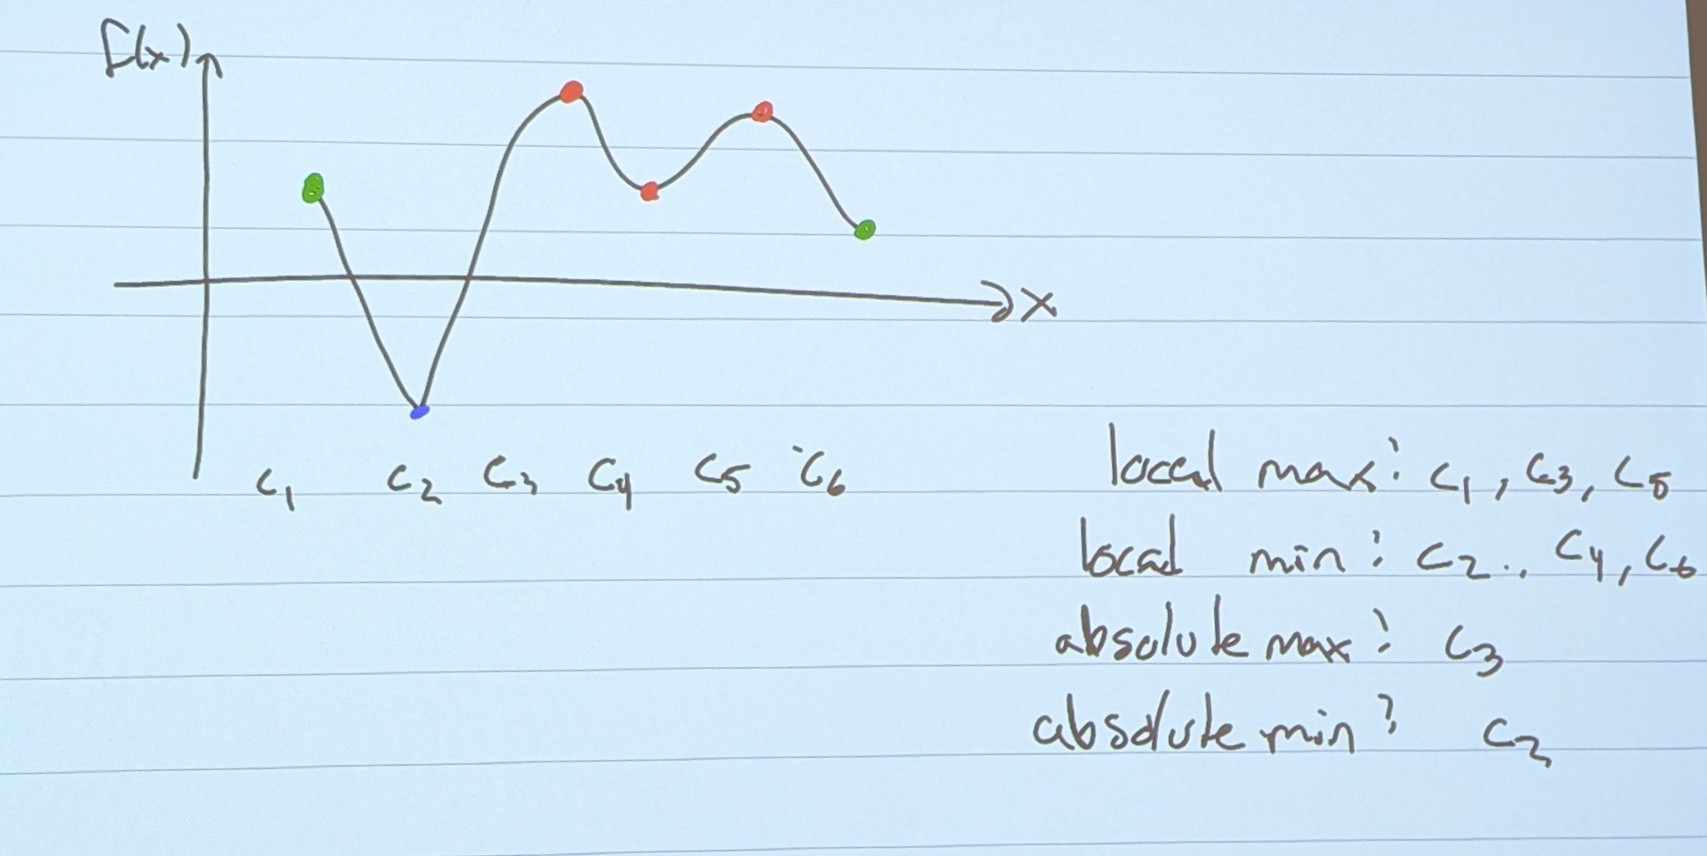 f(x)
x
c₁ c₂ c₃ c₄ c₅ c₆
local max: c₁, c₃, c₅
local min: c₂., c₄, c₆
absolute max: c₃
absolute min: c₂